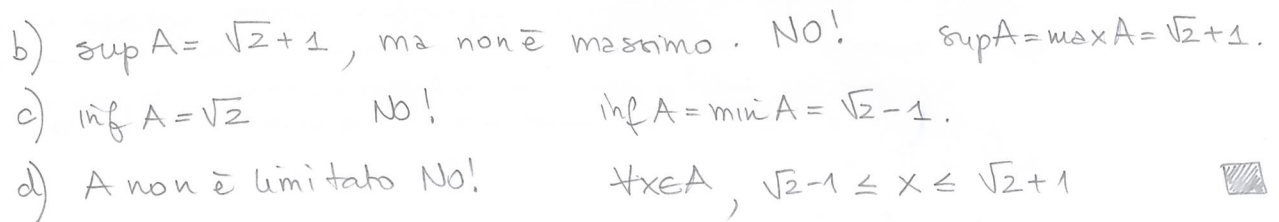 b) sup A = √2 + 1, ma non è massimo. NO! sup A = max A = √2 + 1.
c) inf A = √2 NO! inf A = min A = √2 - 1.
d) A non è limitato NO! ∀x∈A, √2 - 1 ≤ x ≤ √2 + 1